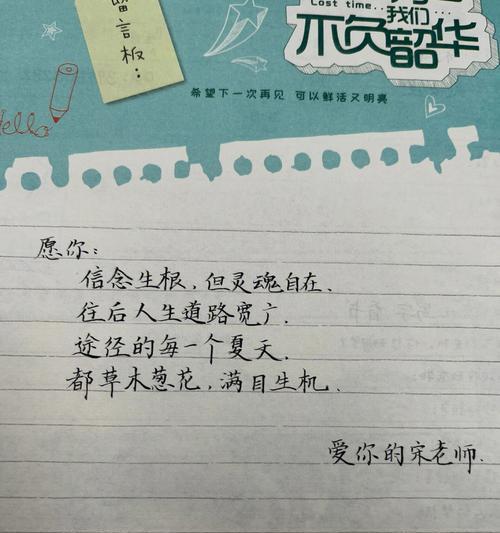 留言板:
Last time...
我们
不负韶华
希望下一次再见 可以鲜活又明亮
Hello
愿你:
信念生根,但灵魂自在.
往后人生道路宽广.
途径的每一个夏天.
都草木葱花,满目生机.
爱你的宋老师.